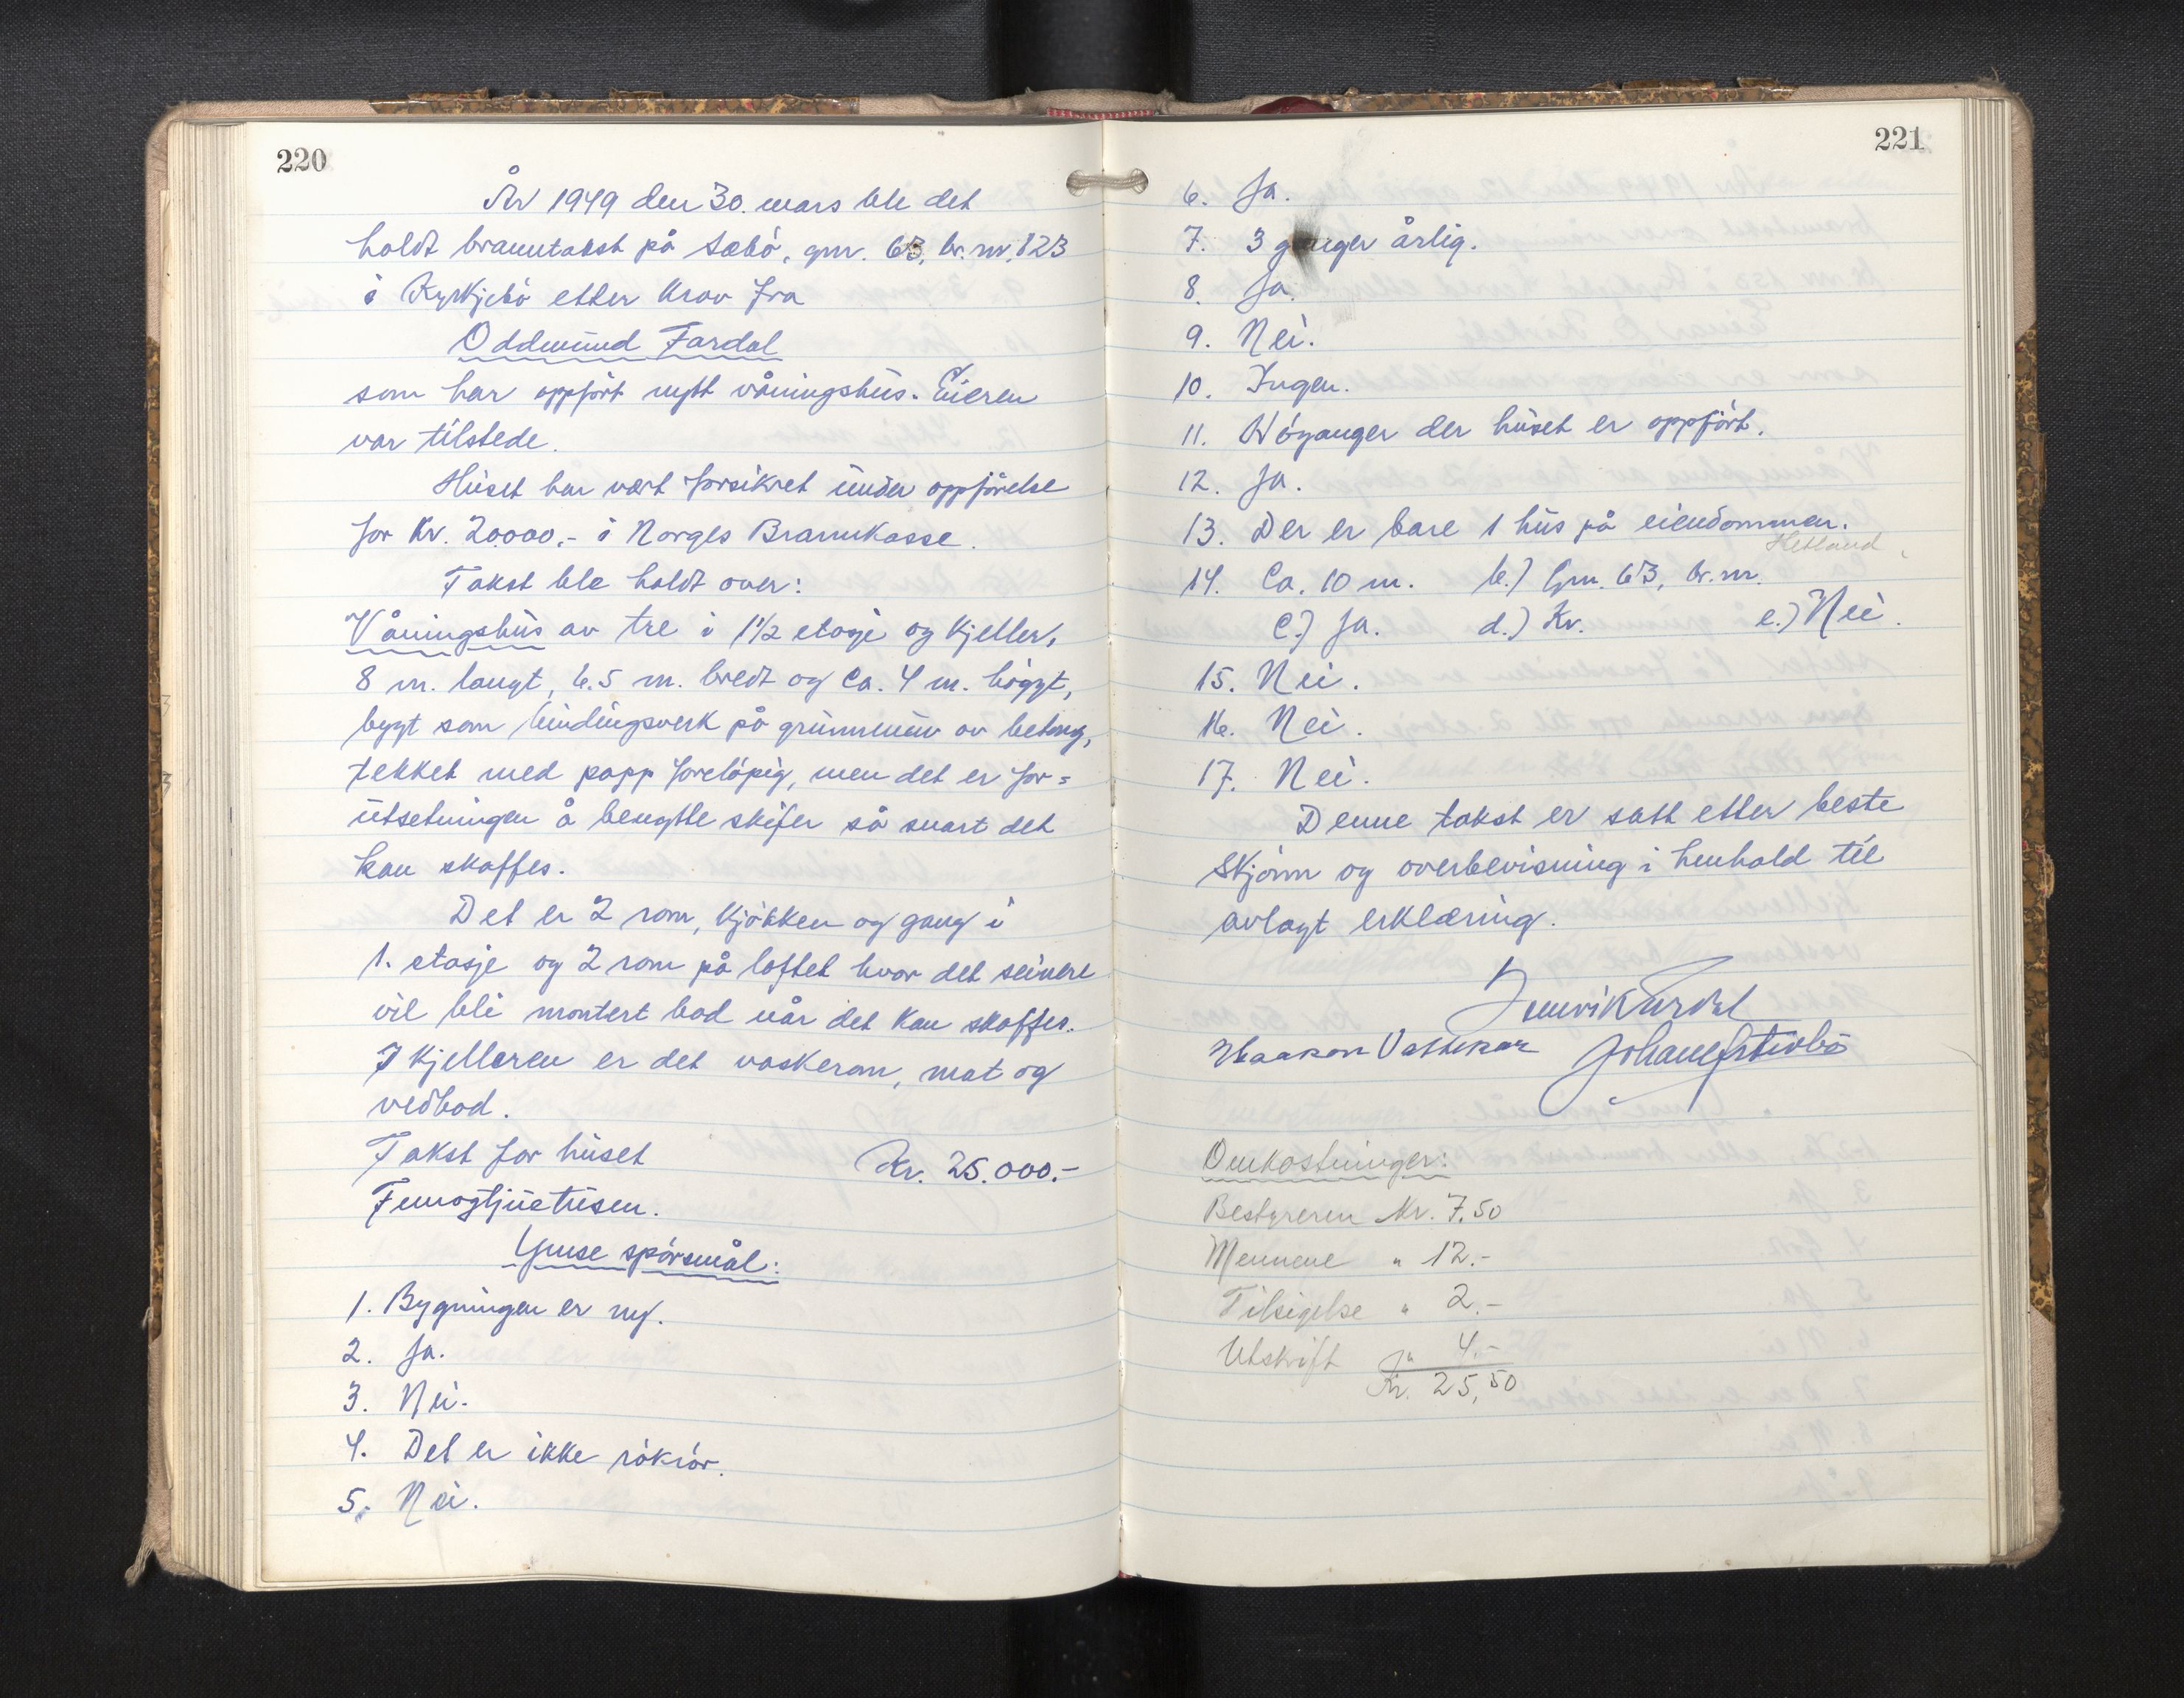 220
År 1949 den 30. mars ble det
holdt branntakst på Sæbö, gnr. 63, br. nr. 123
i Kyrkjebö etter krav fra
Oddmund Fardal
som har oppfört nytt våningshus. Eieren
var tilstede.
Huset har vært forsikret under oppförelse
for Kr. 20.000.- i Norges Brannkasse.
Takst ble holdt over:
Våningshus av tre i 1 1/2 etasje og kjeller,
8 m. langt, 6.5 m. bredt og ca. 4 m. högyt,
bygt som bindingsverk på grunnmur av betong,
tekket med papp forelöpig, men det er for=
utsetningen å benytte skifer så snart det
kan skaffes.
Det er 2 rom, kjökken og gang i
1. etasje og 2 rom på loftet hvor det seinere
vil bli montert bad når det kan skaffes.
I kjelleren er det vaskerom, mat og
vedbod.
Takst for huset Kr. 25.000.-
Femogtjuetusen.
Ymse spörsmål:
1. Bygningen er ny.
2. Ja.
3. Nei.
4. Det er ikke rökrör.
5. Nei.
221
6. Ja.
7. 3 ganger årlig.
8. Ja.
9. Nei.
10. Ingen.
11. Höyanger der huset er oppfört.
12. Ja.
13. Der er bare 1 hus på eiendommen.
Hetland
14. Ca. 10 m. b.) Gnr. 63, br. nr.
c.) Ja. d.) Kr. e.) Nei.
15. Nei.
16. Nei.
17. Nei.
Denne takst er satt etter beste
skjönn og overbevisning i henhold til
avlagt erklæring.
Haakon
Omkostninger:
Bestyreren Kr. 7.50
Mennene " 12.-
Tilsigelse " 2.-
Utskrift " 4.-
Kr. 25,50